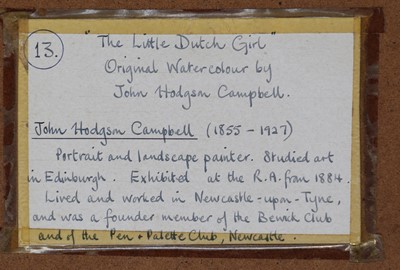 13.
"The Little Dutch Girl"
Original Watercolour by
John Hodgson Campbell.
John Hodgson Campbell (1855 - 1927)
Portrait and landscape painter. Studied art
in Edinburgh. Exhibited at the R.A. from 1884.
Lived and worked in Newcastle-upon-Tyne,
and was a founder member of the Bewick Club
and of the Pen + Palette Club, Newcastle.